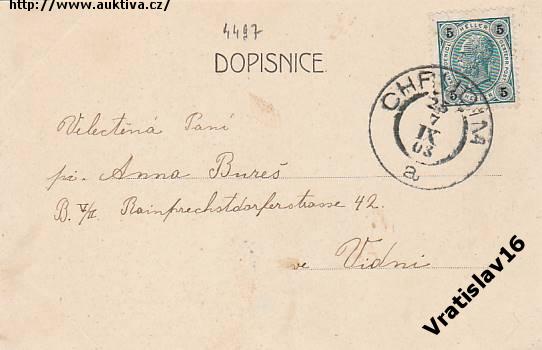 http://www.auktiva.cz/
4497
DOPISNICE.
5 HELLER 5
5 5
CHRUDIM
25
7
IX
03
a
Velectěná Paní
pí. Anna Bureš
B. V/II. Rainprechtsdorferstrasse 42.
ve Vídni
Vratislav16